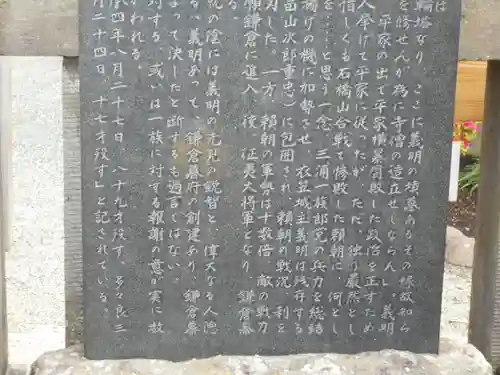 は
輪塔なり、ここに義明の墳墓あるその縁故知ら
を修せんが為に寺僧の造立せしならん」義明
、平家の出で平家横暴閉敗した政治を正すため、
人挙げて平家に従ったが、ただ、独り厳然とし
惜しくも石橋山合戦で惨敗した頼朝に、何とし
を…と思う一念、三浦一族郎党の兵力を総結
揚げの機に加勢させ、衣笠城主義明は残存する
畠山次郎重忠)に包囲され、頼朝の戦況、利を
刃した。一方、頼朝の軍勢は十数倍、敵の戦力
願鎌倉に進入、後、征夷大将軍となり、鎌倉幕
る。
就の陰には義明の先見の鋭智と、偉大なる人徳
、義明あって、鎌倉幕府の創建あり、鎌倉幕
よって決したと断ずるも過言ではない。
対する、或いは一族に対する報謝の意が実に故
われる。
承四年八月二十七日、八十九才歿す、多々良三
二十四日、十七才歿す」と記されている。